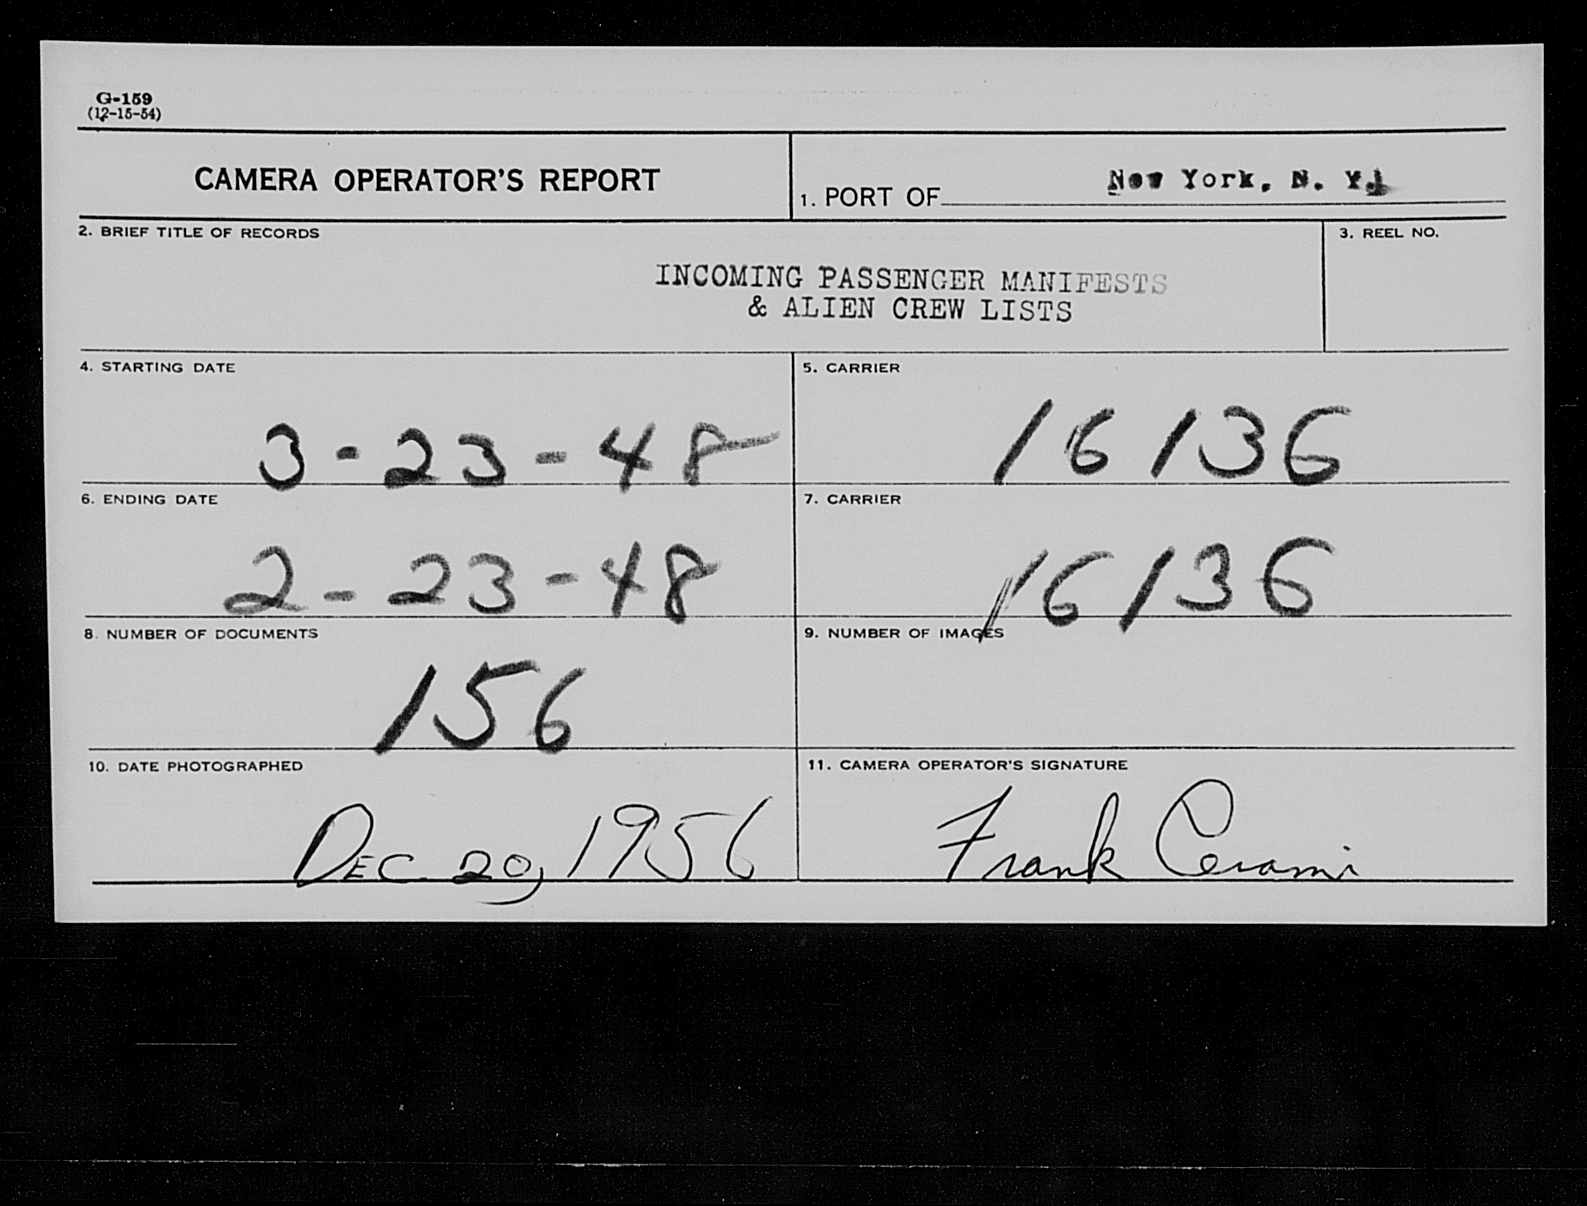 G-159
(12-15-54)
CAMERA OPERATOR'S REPORT
1. PORT OF New York, N. Y.
2. BRIEF TITLE OF RECORDS
INCOMING PASSENGER MANIFESTS
& ALIEN CREW LISTS
3. REEL NO.
4. STARTING DATE
3-23-48
5. CARRIER
16136
6. ENDING DATE
2-23-48
7. CARRIER
16136
8. NUMBER OF DOCUMENTS
156
9. NUMBER OF IMAGES
10. DATE PHOTOGRAPHED
DEC. 20, 1956
11. CAMERA OPERATOR'S SIGNATURE
Frank Cerami